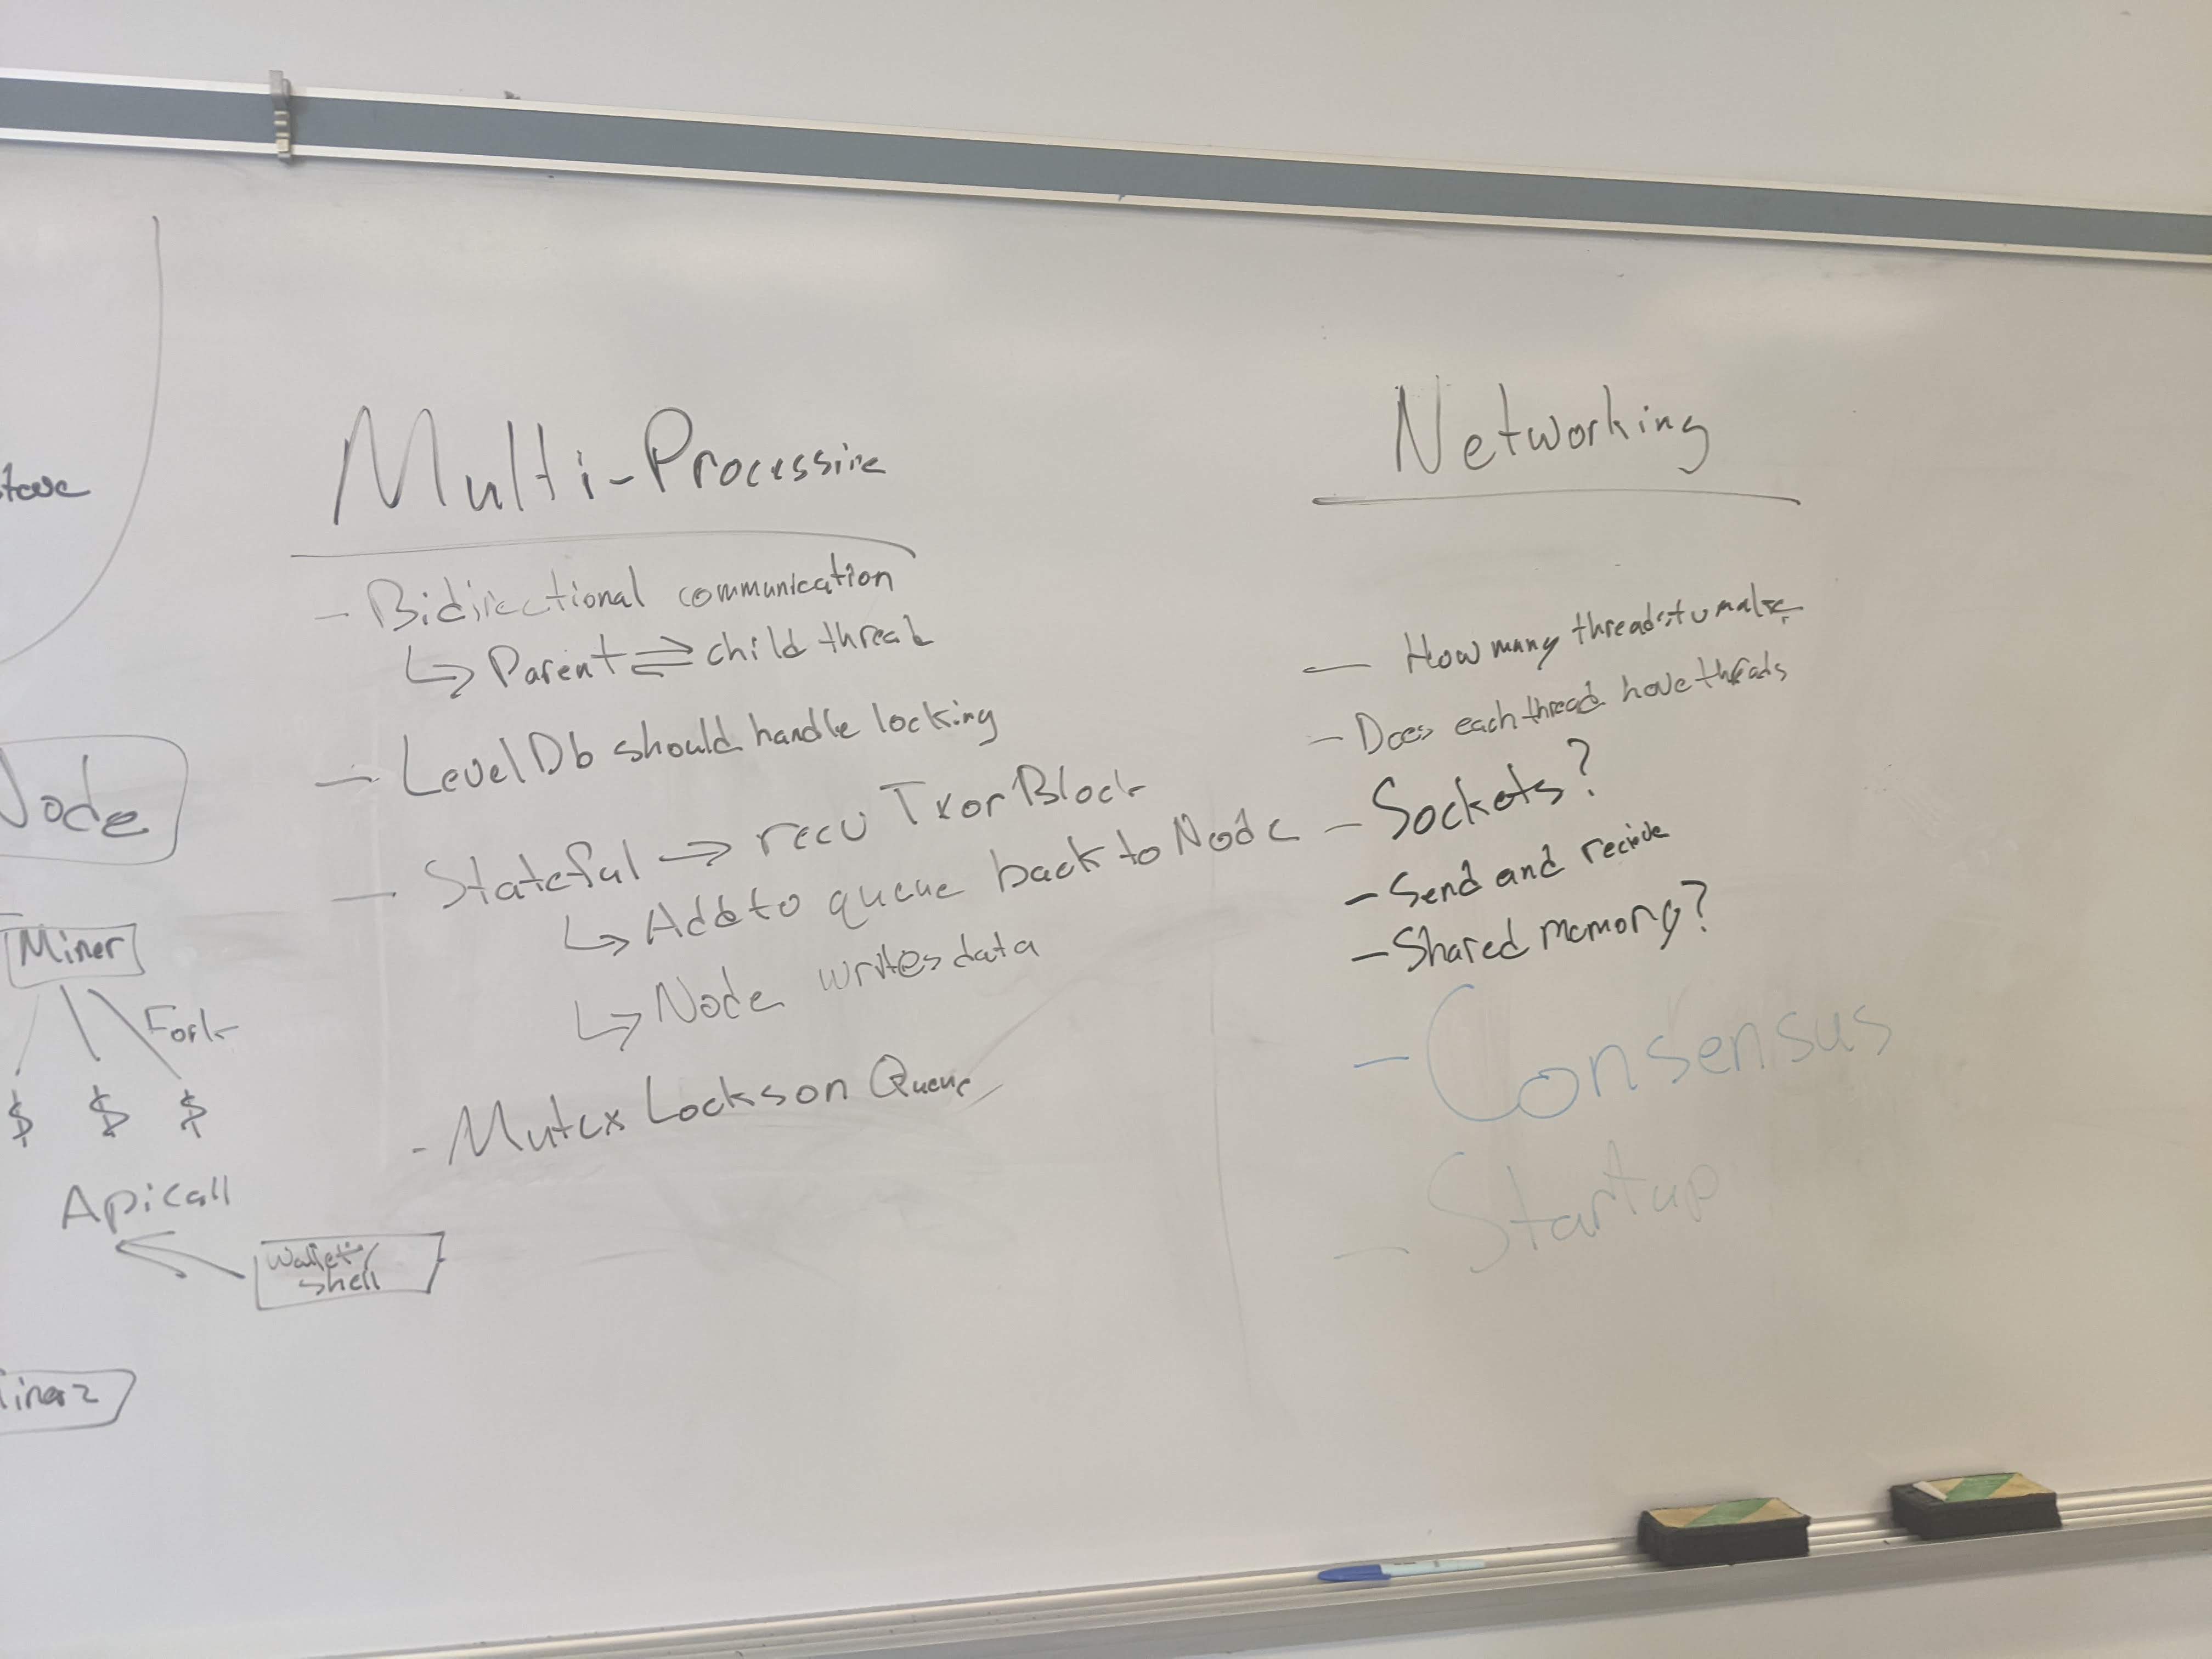 Node
Miner
Fork
$ $ $
Api call
Wallet/
shell
Multi-Processing
- Bidirectional communication
↳ Parent ⇌ child thread
- LevelDb should handle locking
- Stateful → recv Tx or Block
↳ Add to queue back to Node
↳ Node writes data
- Mutex Locks on Queue
Networking
- How many threads to make
- Does each thread have threads
- Sockets?
- Send and recieve
- Shared memory?
- Consensus
- Startup